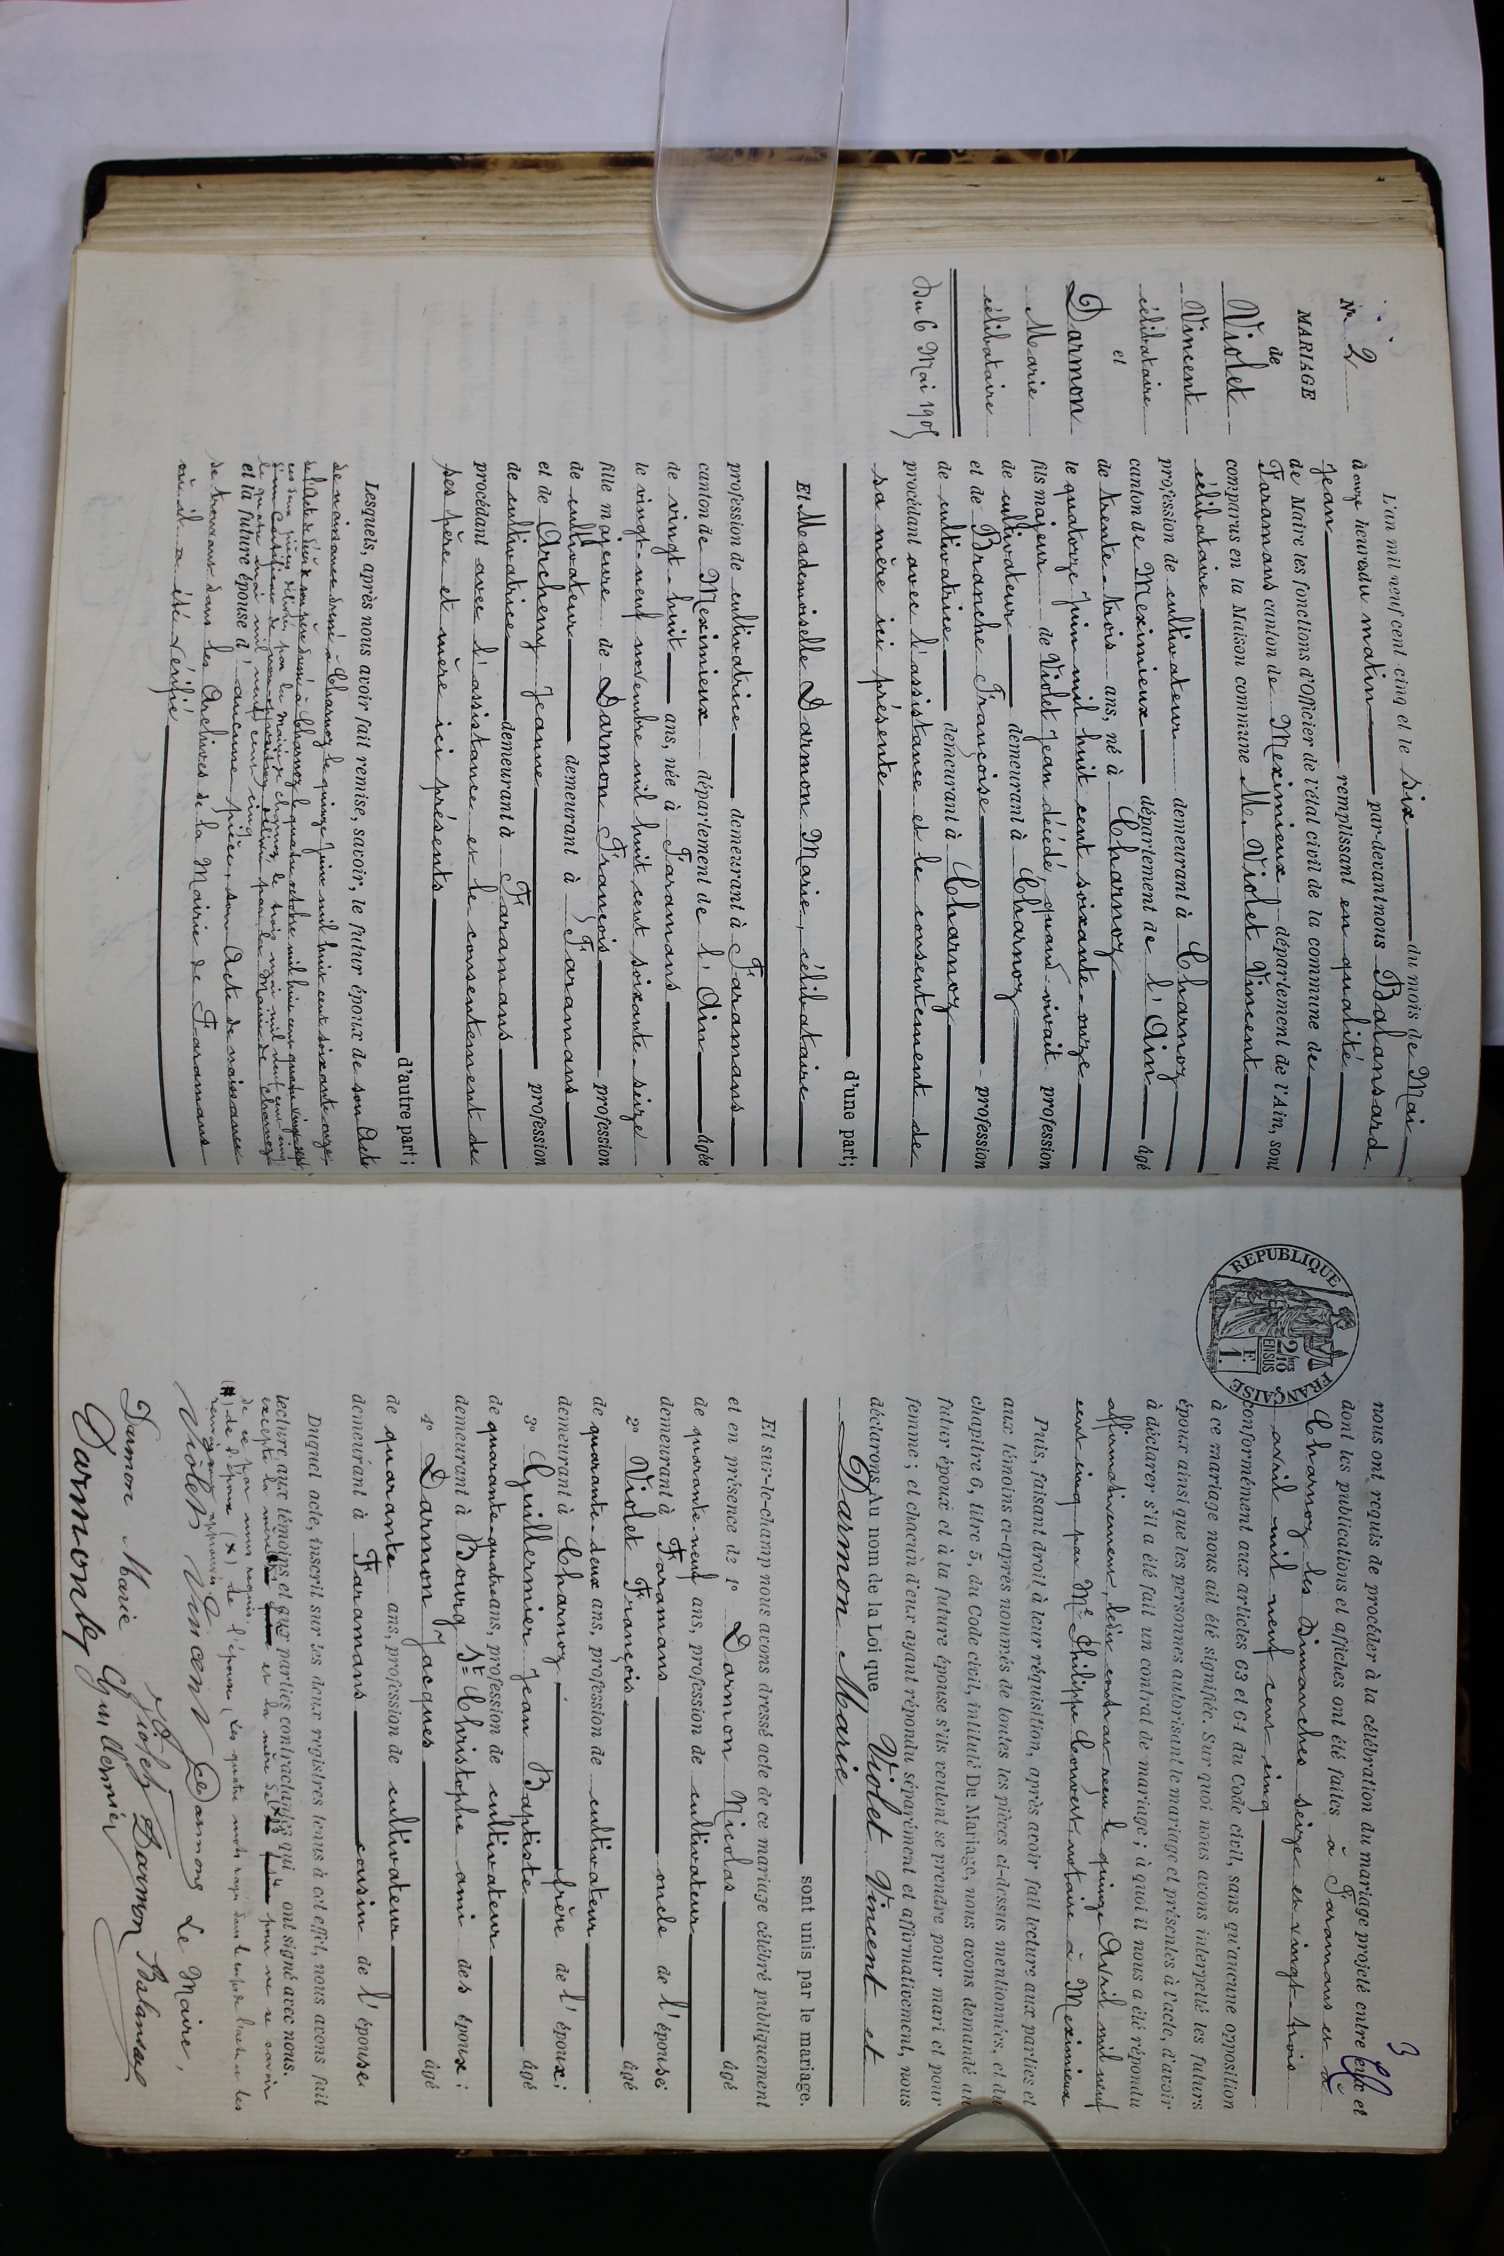 N° 2
MARIAGE
de
Violet
Vincent
célibataire
et
Darmon
Marie
célibataire
Du 6 Mai 1905
L'an mil neuf cent cinq et le six du mois de Mai
à onze heures du matin par-devant nous Balansard
Jean remplissant en qualité
de Maire les fonctions d'Officier de l'état civil de la commune de
Faramans canton de Meximieux département de l'Ain, sont
comparus en la Maison commune M. Violet Vincent
célibataire
profession de cultivateur demeurant à Charnoz
canton de Meximieux département de l'Ain âgé
de trente-trois ans, né à Charnoz
le quatorze juin mil huit cent soixante-onze
fils majeur de Violet Jean décédé, quand vivait profession
de cultivateur demeurant à Charnoz
et de Branche Françoise profession
de cultivatrice demeurant à Charnoz
procédant avec l'assistance et le consentement de
sa mère ici présente
d'une part;
Et Mademoiselle Darmon Marie, célibataire
profession de cultivatrice demeurant à Faramans
canton de Meximieux département de l'Ain âgée
de vingt-huit ans, née à Faramans
le vingt-neuf novembre mil huit cent soixante-seize
fille majeure de Darmon François profession
de cultivateur demeurant à Faramans
et de Archeny Jeanne profession
de cultivatrice demeurant à Faramans
procédant avec l'assistance et le consentement de
ses père et mère ici présents
d'autre part;
Lesquels, après nous avoir fait remise, savoir, le futur époux de son Acte
de naissance dressé à Charnoz le quinze juin mil huit cent soixante onze
de l'Acte de décès de son père dressé à Charnoz le quatre octobre mil huit cent quatre vingt
ces deux pièces délivrées par la mairie de Charnoz le trois mai mil neuf cent cinq
d'un Certificat de non opposition délivré par la Mairie de Charnoz
le quatre mai mil neuf cent cinq
et la future épouse d'aucune pièce, son Acte de naissance
se trouvant dans les Archives de la Mairie de Faramans
où il a été vérifié
3
REPUBLIQUE FRANÇAISE
2/10 EN SUS
1 F.
nous ont requis de procéder à la célébration du mariage projeté entre eux et
dont les publications et affiches ont été faites à Faramans et à
Charnoz les Dimanches seize et vingt-trois
avril mil neuf cent cinq
conformément aux articles 63 et 64 du Code civil, sans qu'aucune opposition
à ce mariage nous ait été signifiée. Sur quoi nous avons interpellé les futurs
époux ainsi que les personnes autorisant le mariage et présentes à l'acte, d'avoir
à déclarer s'il a été fait un contrat de mariage; à quoi il nous a été répondu
affirmativement, ledit contrat reçu le quinze Avril mil neuf
cent cinq par Me Philippe Convert notaire à Meximieux
Puis, faisant droit à leur réquisition, après avoir fait lecture aux parties et
aux témoins ci-après nommés de toutes les pièces ci-dessus mentionnées, et du
chapitre 6, titre 5, du Code civil, intitulé Du Mariage, nous avons demandé au
futur époux et à la future épouse s'ils veulent se prendre pour mari et pour
femme; et chacun d'eux ayant répondu séparément et affirmativement, nous
déclarons Au nom de la Loi que Violet Vincent et
Darmon Marie
sont unis par le mariage.
Et sur-le-champ nous avons dressé acte de ce mariage célébré publiquement
et en présence de 1° Darmon Nicolas âgé
de quarante-neuf ans, profession de cultivateur
demeurant à Faramans oncle de l'épouse;
2° Violet François âgé
de quarante-deux ans, profession de cultivateur
demeurant à Charnoz, frère de l'époux;
3° Guillermier Jean Baptiste âgé
de quarante-quatre ans, profession de cultivateur
demeurant à Bourg St Christophe ami des époux;
4° Darmon Jacques âgé
de quarante ans, profession de cultivateur
demeurant à Faramans cousin de l'épouse
Duquel acte, inscrit sur les deux registres tenus à cet effet, nous avons fait
lecture aux témoins et aux parties contractantes qui ont signé avec nous.
excepté la mère et la mère de pour ne se savoir
de ce par nous requis.
(#) de l'époux (x) de l'épouse
renvois approuvés
Violet Vincent Darmon Le Maire,
Darmon Marie Violet Darmon Balansard
Darmon Guillermier